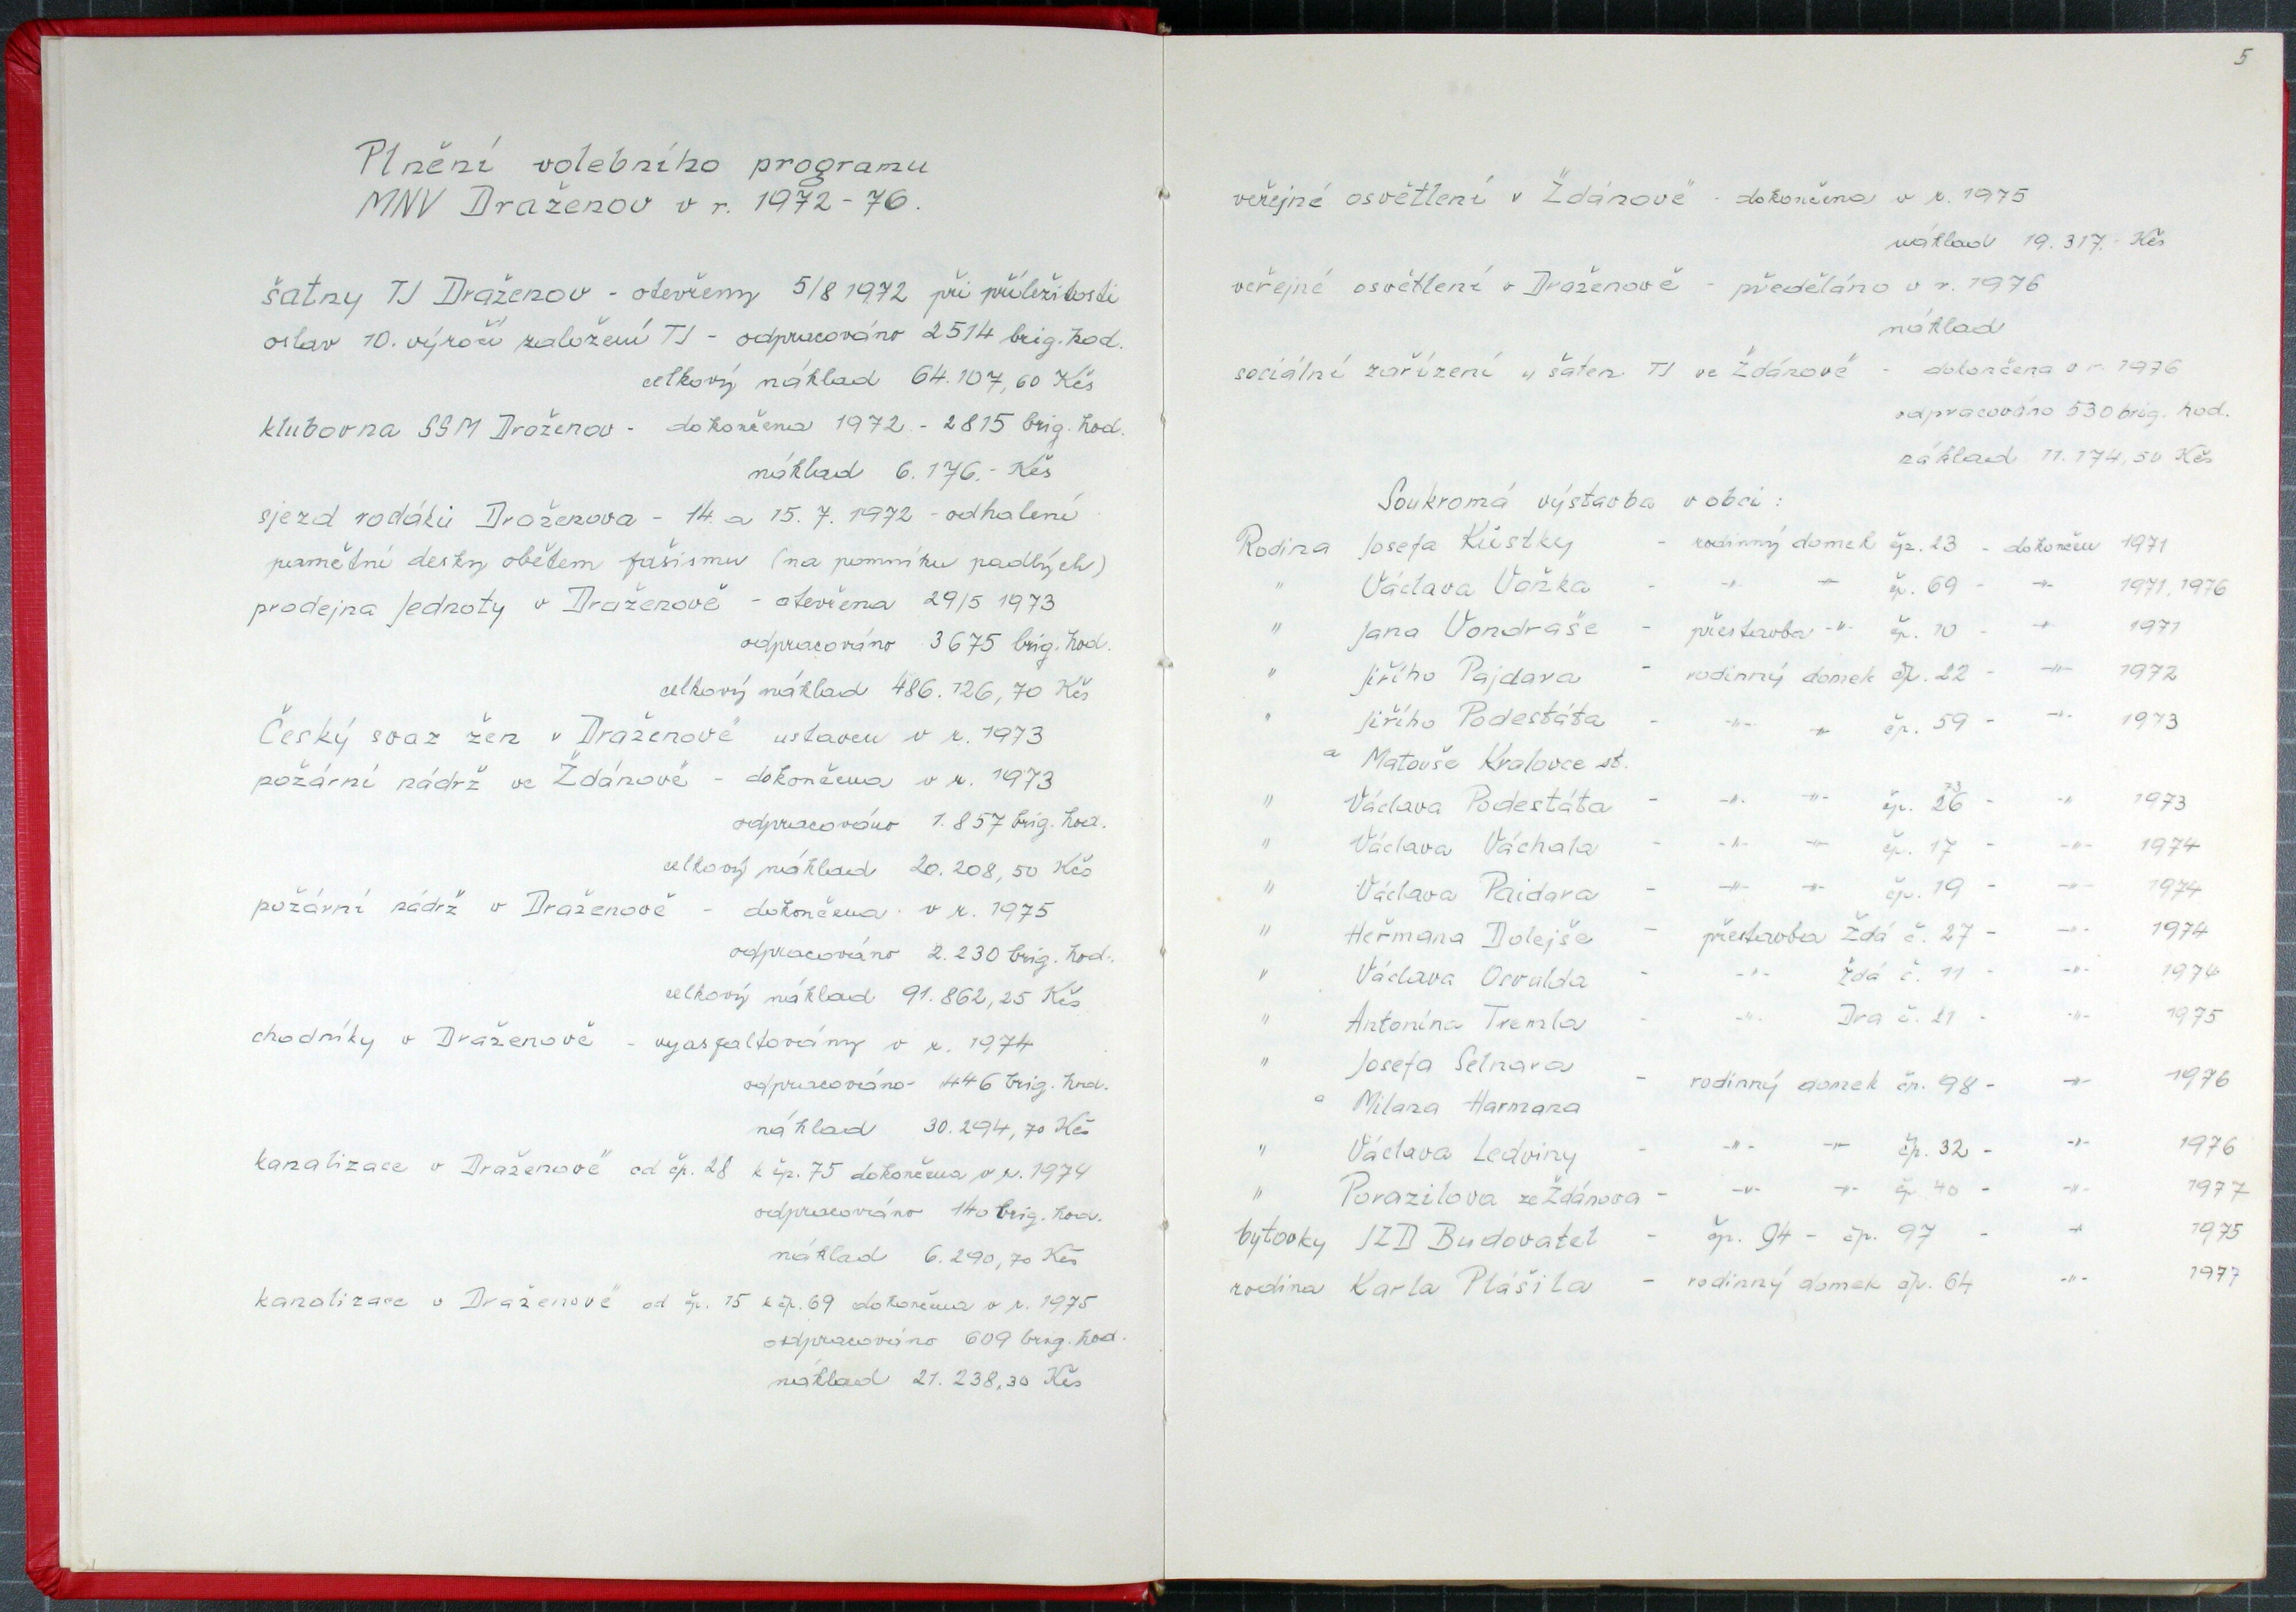 Plnění volebního programu
MNV Draženov v r. 1972 - 76.
šatny TJ Draženov - otevřeny 5/8 1972 při příležitosti
oslav 10. výročí založení TJ - odpracováno 2514 brig. hod.
celkový náklad 64.107,60 Kčs
klubovna SSM Draženov - dokončena 1972 - 2815 brig. hod.
náklad 6.176.- Kčs
sjezd rodáků Draženova - 14. a 15. 7. 1972 - odhalení
pamětní desky obětem fašismu (na pomníku padlých)
prodejna Jednoty v Draženově - otevřena 29/5 1973
odpracováno 3675 brig. hod.
celkový náklad 486.126,70 Kčs
Český svaz žen v Draženově ustaven v r. 1973
požární nádrž ve Ždánově - dokončena v r. 1973
odpracováno 1.857 brig. hod.
celkový náklad 20.208,50 Kčs
požární nádrž v Draženově - dokončena v r. 1975
odpracováno 2.230 brig. hod.
celkový náklad 91.862,25 Kčs
chodníky v Draženově - vyasfaltovány v r. 1974
odpracováno 446 brig. hod.
náklad 30.294,70 Kčs
kanalizace v Draženově od čp. 28 k čp. 75 dokončena v r. 1974
odpracováno 140 brig. hod.
náklad 6.290,70 Kčs
kanalizace v Draženově od čp. 15 k čp. 69 dokončena v r. 1975
odpracováno 609 brig. hod.
náklad 21.238,30 Kčs
5
veřejné osvětlení v Ždánově - dokončena v r. 1975
náklad 19.317.- Kčs
veřejné osvětlení v Draženově - předěláno v r. 1976
náklad
sociální zařízení u šaten TJ ve Ždánově - dokončena v r. 1976
odpracováno 530 brig. hod.
náklad 11.174,50 Kčs
Soukromá výstavba v obci :
Rodina Josefa Kůstky - rodinný domek čp. 23 - dokončen 1971
" Václava Vaňka - -"- -"- čp. 69 - -"- 1971, 1976
" Jana Vondraše - přestavba -"- čp. 10 - -"- 1971
" Jiřího Pajdara - rodinný domek čp. 22 - -"- 1972
" Jiřího Podestáta - -"- -"- čp. 59 - -"- 1973
a Matouše Kralovce st.
" Václava Podestáta - -"- -"- čp. 26 73 - -"- 1973
" Václava Váchala - -"- -"- čp. 17 - -"- 1974
" Václava Paidara - -"- -"- čp. 19 - -"- 1974
" Heřmana Dolejše - přestavba Ždá č. 27 - -"- 1974
" Václava Osvalda - -"- Ždá č. 11 - -"- 1974
" Antonína Tremla - -"- Dra č. 21 - -"- 1975
" Josefa Selnara
- rodinný domek čp. 98 - -"- 1976
a Milana Harmana
" Václava Ledviny - -"- -"- čp. 32 - -"- 1976
" Porazilova ze Ždánova - -"- -"- čp 40 - -"- 1977
bytovky JZD Budovatel - čp. 94 - čp. 97 - -"- 1975
rodina Karla Plášila - rodinný domek čp. 64 -"- 1977